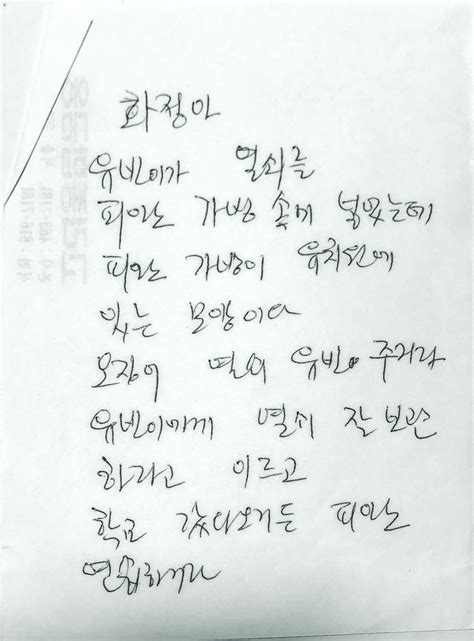 화정아
유빈이가 열쇠를
피아노 가방 속에 넣었는데
피아노 가방이 유치원에
있는 모양이다
열쇠 유빈이 주거라
유빈이에게 열쇠 잘 보관
하라고 이르고
학교 갔다오거든 피아노
연습하거라